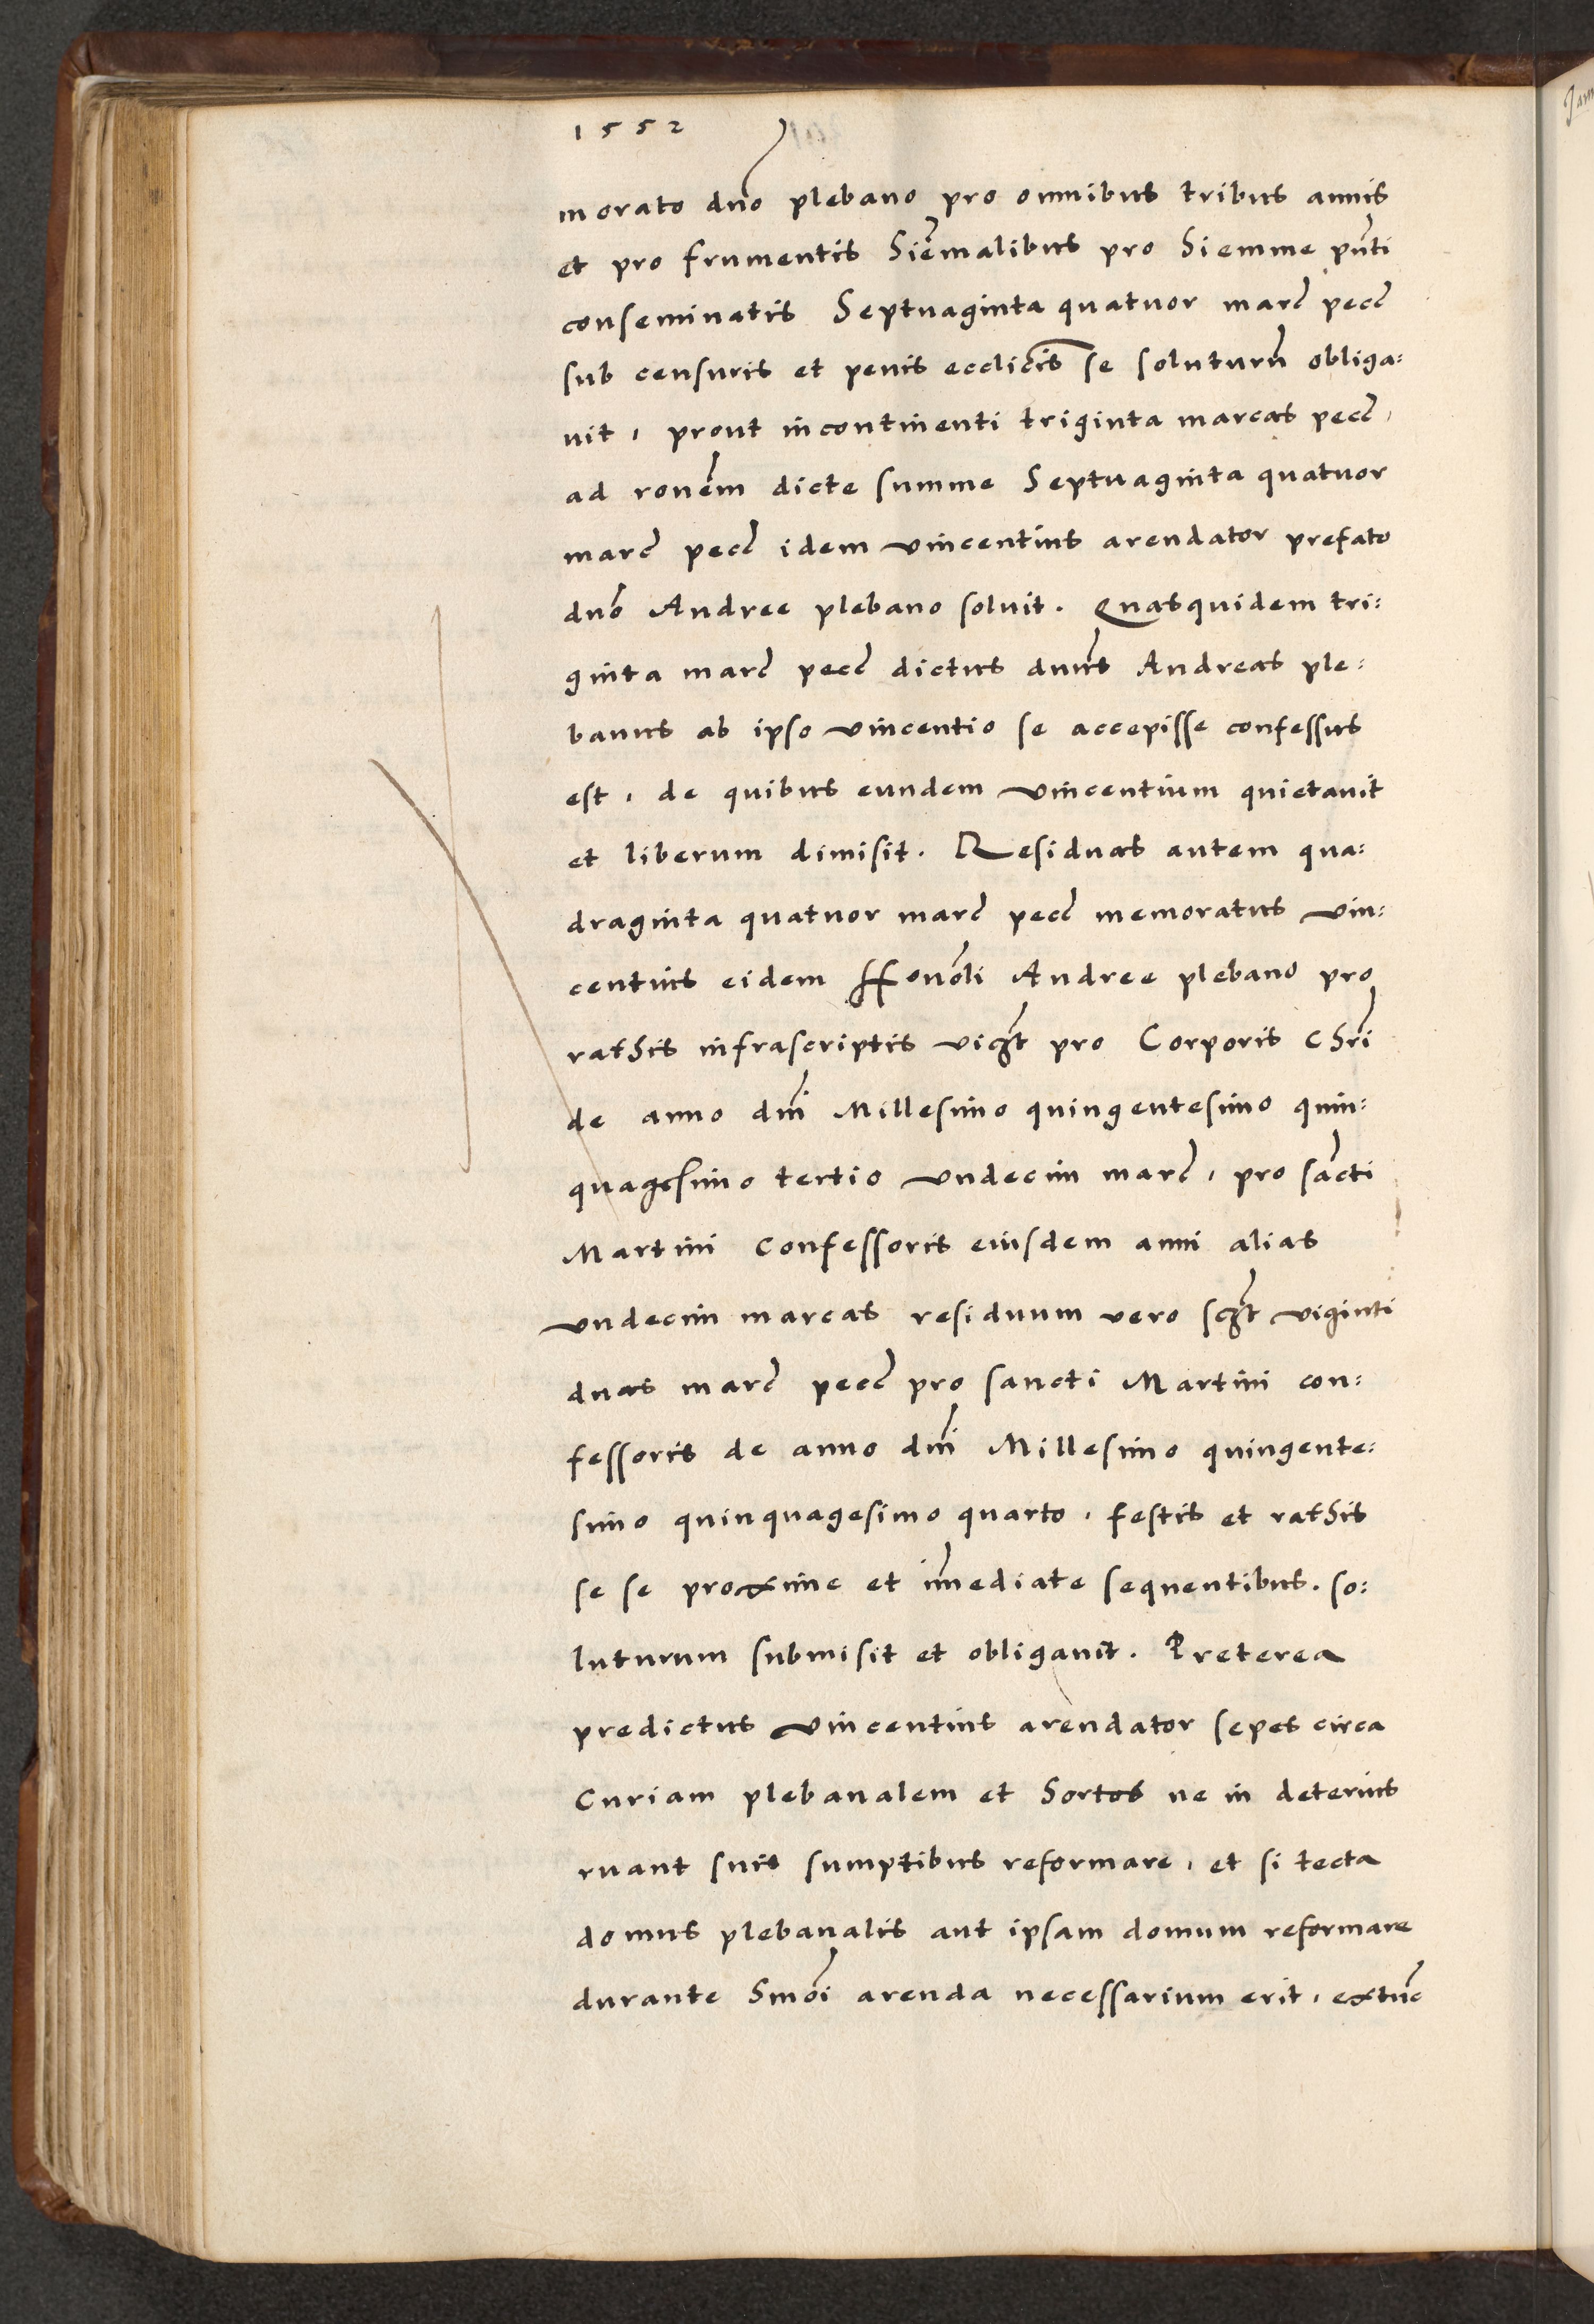 1552
morato dno plebano pro omnibus tribus annis
et pro frumentis hiemalibus pro hiemme pnti
conseminatis Septuaginta quatuor marc pecc
sub censuris et penis ecclicis se soluturu obliga:
vit, prout incontinenti triginta marcas pecc,
ad ronem dicte summe Septuaginta quatuor
marc pecc idem vincentius arendator prefato
dno Andree plebano soluit. Quasquidem tri:
ginta marc pecc dictus dnus Andreas ple:
banus ab ipso vincentio se accepisse confessus
est, de quibus eundem vincentium quietauit
et liberum dimisit. Residuas autem qua:
draginta quatuor marc pecc memoratus vin:
centius eidem Honoli Andree plebano pro
rathis infrascriptis vict pro Corporis Chri
de anno dni Millesimo quingentesimo quin:
quagesimo tertio vndecim marc, pro sacti
Martini Confessoris eiusdem anni alias
vndecim marcas residuum vero sct viginti
duas marc pecc pro sancti Martini con:
fessoris de anno dni Millesimo quingente:
simo quinquagesimo quarto, festis et rathis
se se proxime et imediate sequentibus. so:
luturum submisit et obligauit. Preterea
predictus vincentius arendator sepes circa
Curiam plebanalem et hortos ne in deterius
ruant suis sumptibus reformare, et si tecta
domus plebanalis aut ipsam domum reformare
durante hmoi arenda necessarium erit, extuc